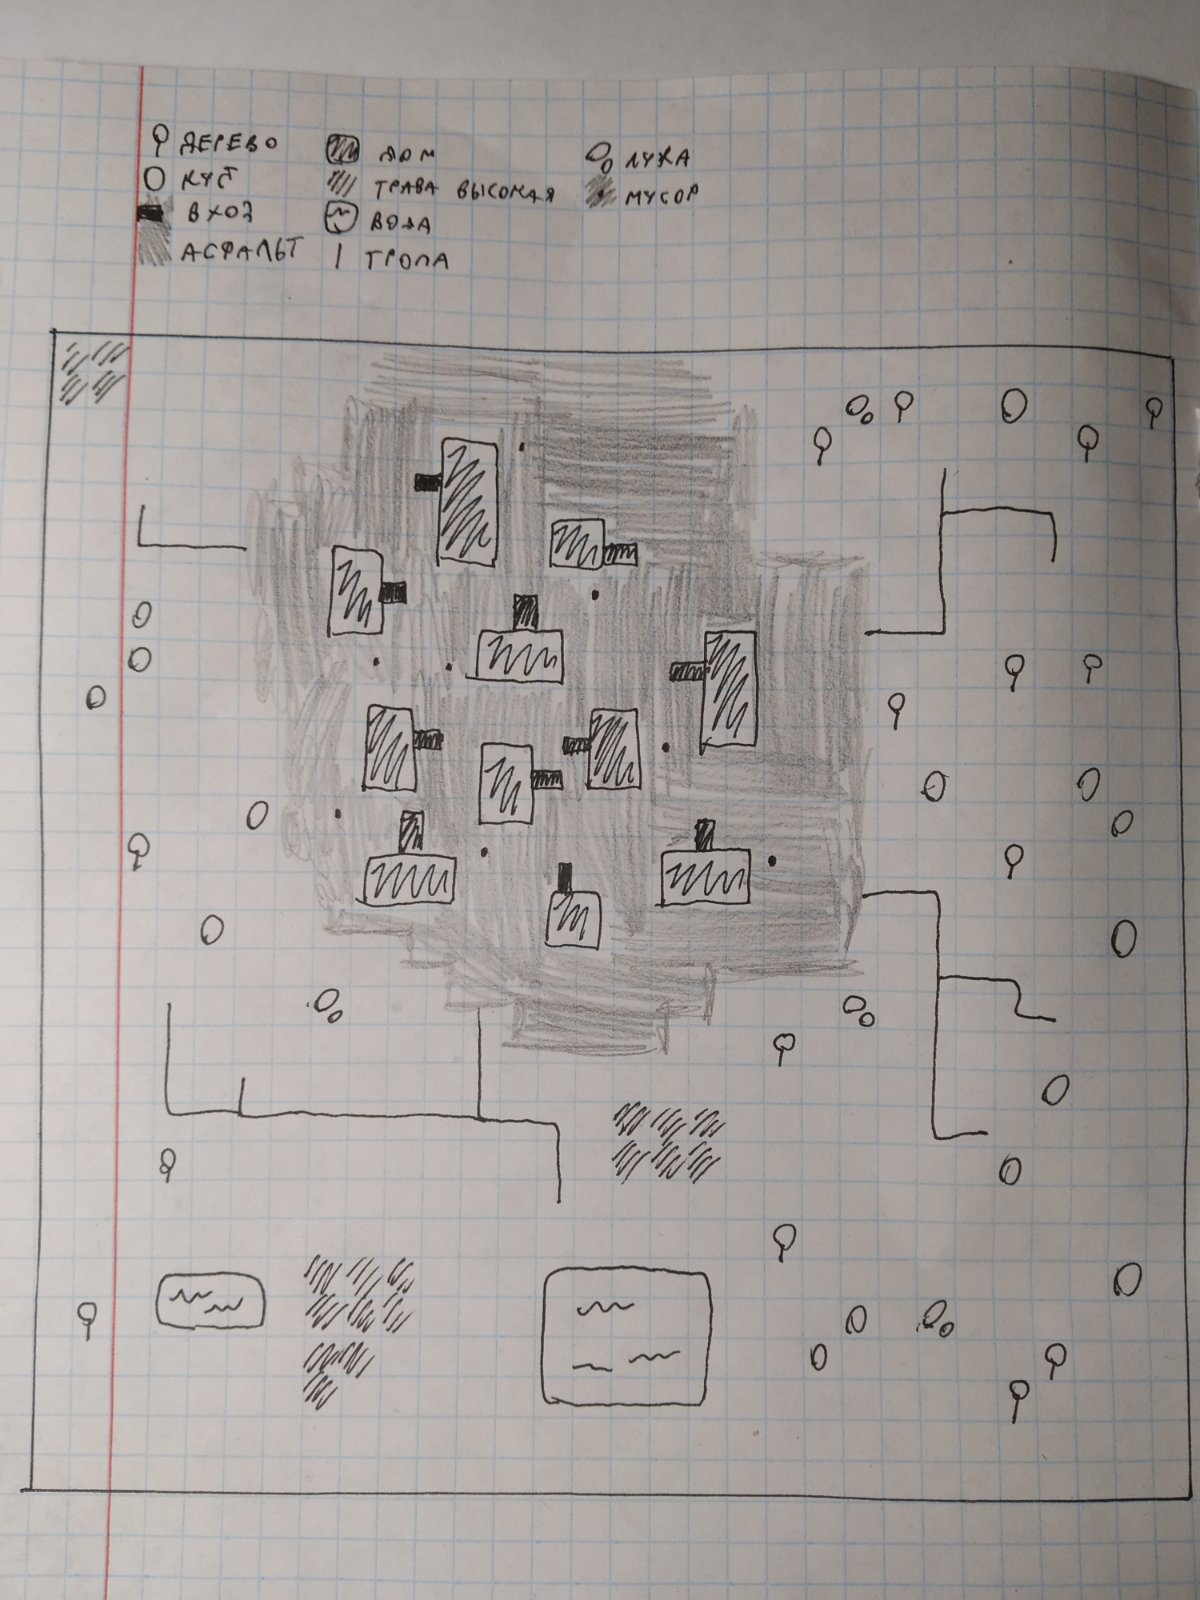 ДЕРЕВО
КУСТ
ВХОД
АСФАЛЬТ
ДОМ
ТРАВА ВЫСОКАЯ
ВОДА
ТРОПА
ЛУЖА
МУСОР